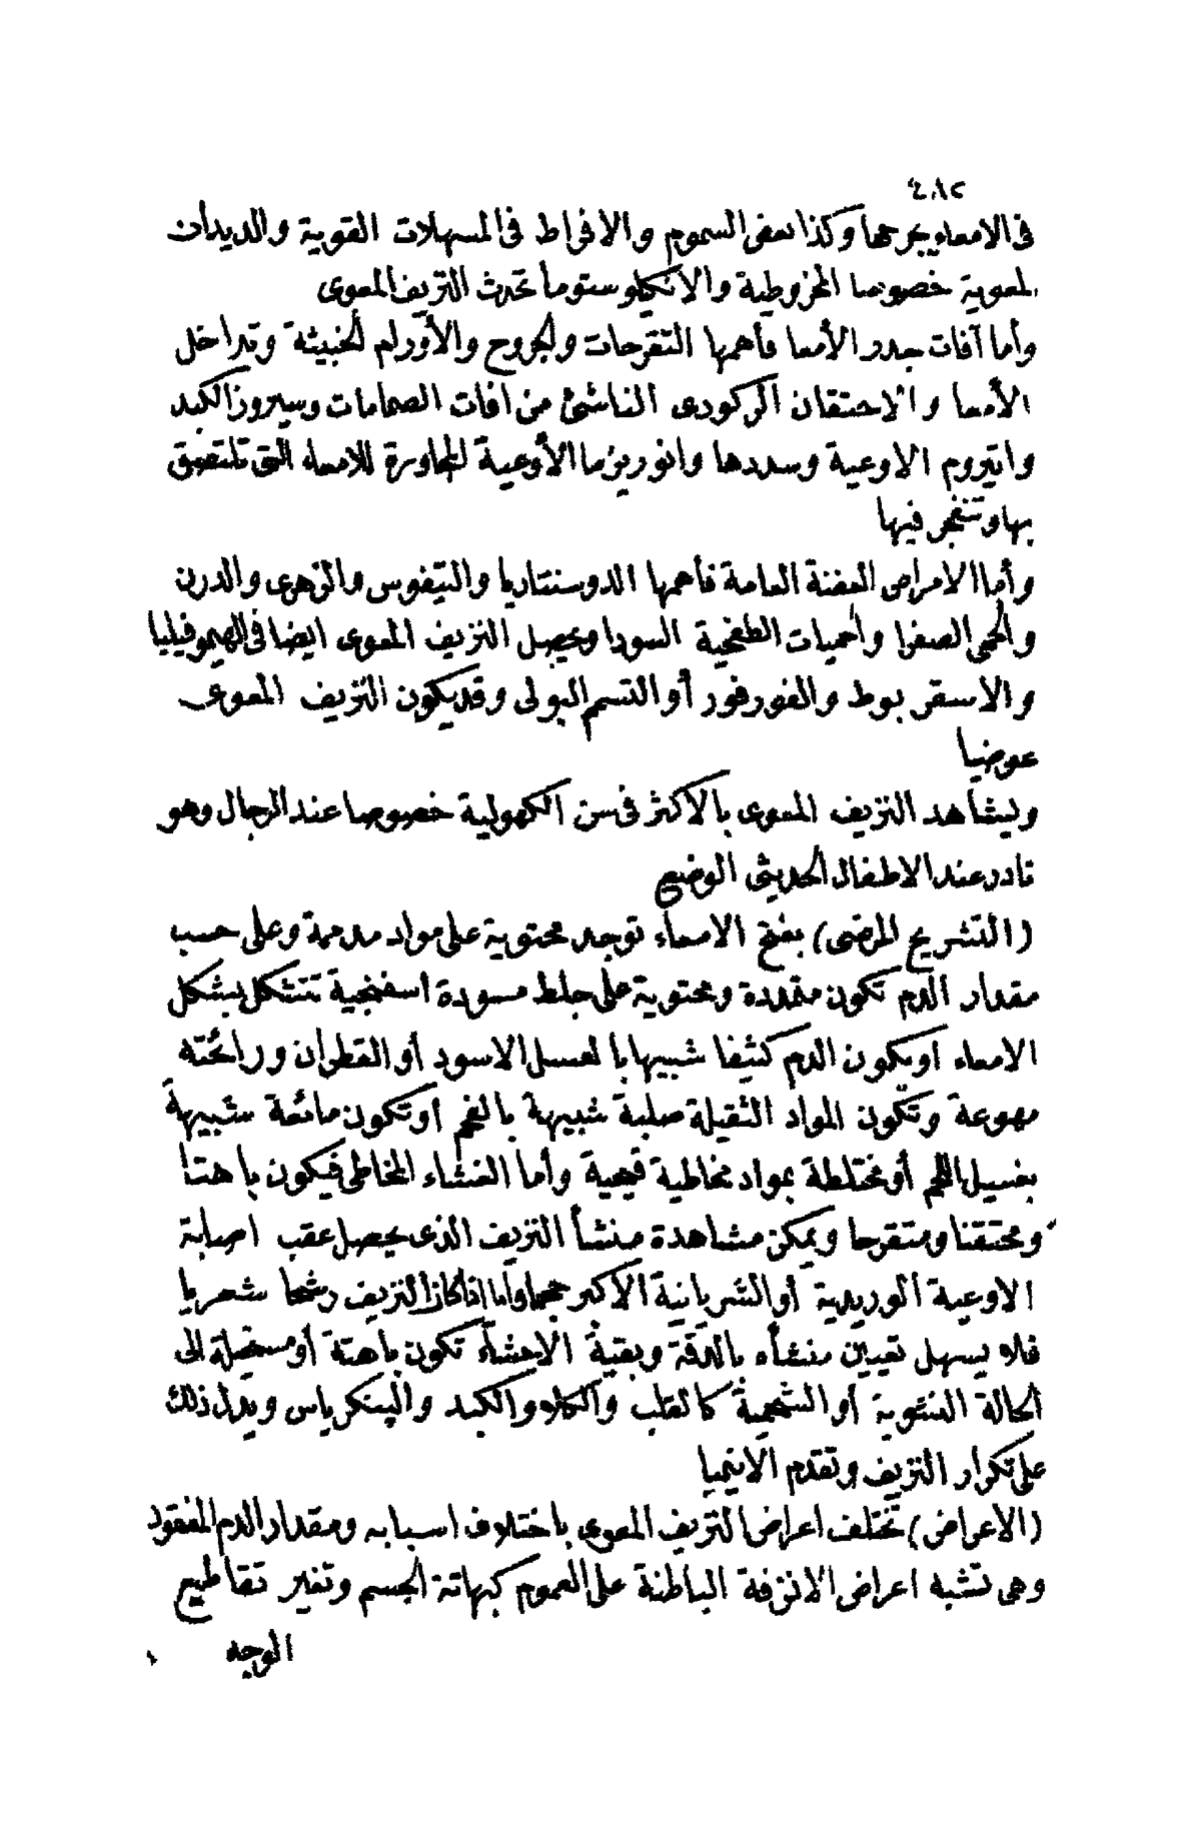 ٤٨٢
فى الامعاء يجرحها وكذا بعض السموم والافراط فى المسهلات القوية والديدان
لمعوية خصوصا المخروطية والانكيلوستوما تحدث النزيف المعوى
وأما آفات جدر الأمعا فأهمها التقرحات والجروح والأورام الخبيثة وتداخل
الأمعا والاحتقان الركودى الناشئ من افات الصمامات وسيروز الكبد
واتيروم الاوعية وسددها وانورزما الأوعية المجاورة للامعاء التى تلتصق
بها وتنفجر فيها
وأما الامراض العفنة العامة فأهمها الدوسنتاريا والتيفوس والزهرى والدرن
والحمى الصفرا والحميات الطفحية السودا ويحصل النزيف المعوى ايضا فى الهيموفيليا
والاسقربوط والفورفور أو التسمم البولى وقد يكون النزيف المعوى
عوضيا
ويشاهد النزيف المعوى بالاكثر فى سن الكهولية خصوصا عند الرجال وهو
نادر عند الاطفال الحديثى الوضع
(التشريح المرضى) بفتح الامعاء توجد محتوية على مواد مدممة وعلى حسب
مقدار الدم تكون متمددة ومحتوية على جلط مسودة اسفنجية تتشكل بشكل
الامعاء او يكون الدم كثيفا شبيها بالعسل الاسود أو القطران ورائحته
مهوعة وتكون المواد الثقيلة صلبة شبيهة بالفحم أو تكون مائعة شبيهة
بغسيل اللحم أو مختلطة بمواد مخاطية قيحية وأما الغشاء المخاطى فيكون باهتا
ومحتقنا ومتقرحا ويمكن مشاهدة منشأ النزيف الذى يحصل عقب اصابة
الاوعية الوريدية أو الشريانية الأكبر حجما وأما اذا كان النزيف رشحا شعريا
فلا يسهل تعيين منشأه بالدقة وبقية الاحشاء تكون باهتة أو مستحيلة الى
الحالة النشوية أو الشحمية كالقلب والكلا والكبد والبنكرياس ويدل ذلك
على تكرار النزيف وتقدم الانيميا
(الاعراض) تختلف اعراض النزيف المعوى باختلاف اسبابه ومقدار الدم المفقود
وهى تشبه اعراض الانزفة الباطنة على العموم كبهاتة الجسم وتغير تقاطيع
الوجه